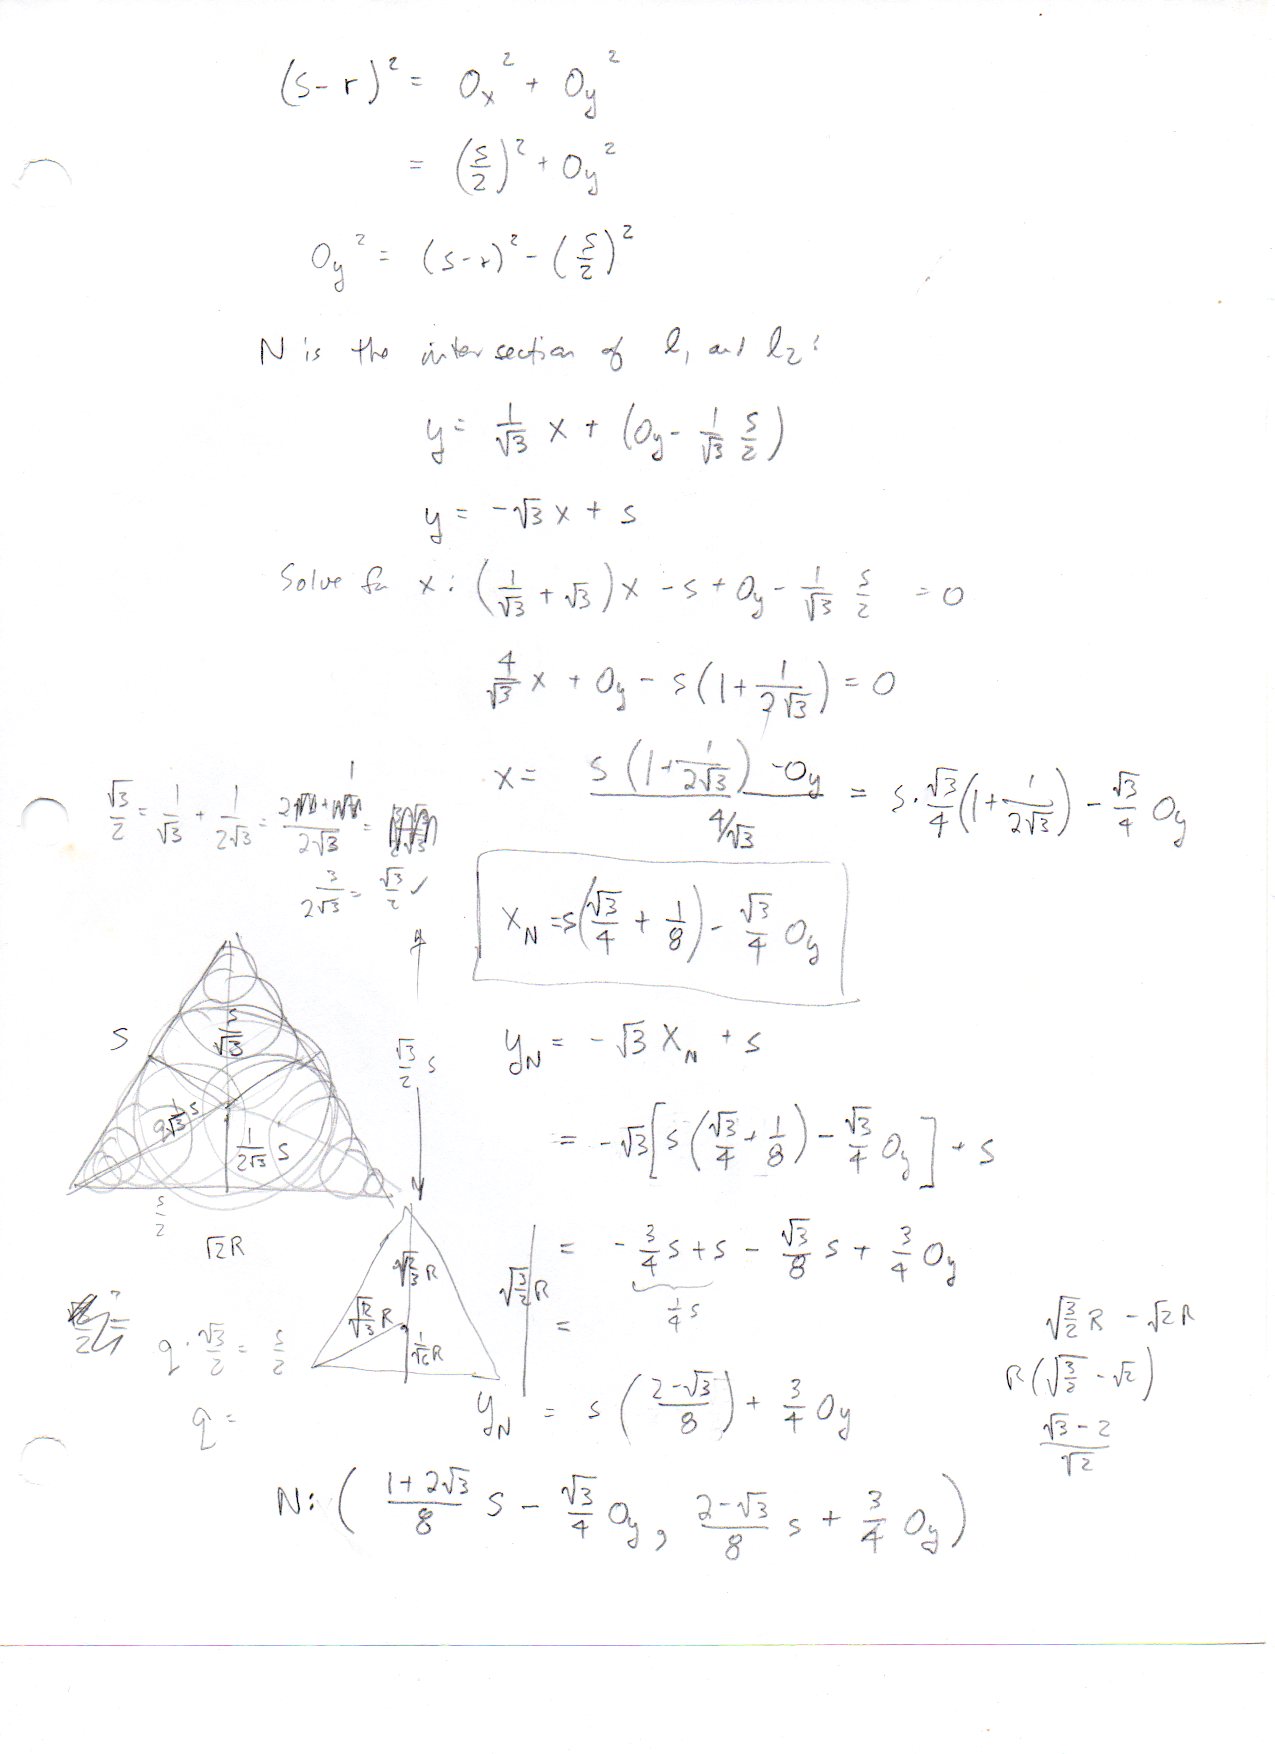 (s-r)² = Oₓ² + O_y²
= (s/2)² + O_y²
O_y² = (s-r)² - (s/2)²
N is the intersection of l₁ and l₂:
y = 1/√3 x + (O_y - 1/√3 s/2)
y = -√3 x + s
Solve for x: (1/√3 + √3)x - s + O_y - 1/√3 s/2 = 0
4/√3 x + O_y - s(1 + 1/(2√3)) = 0
x = (s(1 + 1/(2√3)) - O_y)/(4/√3) = s·√3/4(1 + 1/(2√3)) - √3/4 O_y
√3/2 = 1/√3 + 1/(2√3) =
3/(2√3) = √3/2 ✓
x_N = s(√3/4 + 1/8) - √3/4 O_y
s
s/√3
√3/2 s
1/√3 s
1/(2√3) s
s/2
√2R
y_N = -√3 x_N + s
= -√3[s(√3/4 + 1/8) - √3/4 O_y] + s
= -3/4 s + s - √3/8 s + 3/4 O_y
1/4 s
=
√(2/3) R
√(2/3) R
1/√6 R
√(3/2) R
q · √3/2 = s/2
q =
√(3/2) R - √2R
R(√(3/2) - √2)
(√3 - 2)/√2
y_N = s((2-√3)/8) + 3/4 O_y
N: ((1+2√3)/8 s - √3/4 O_y, (2-√3)/8 s + 3/4 O_y)